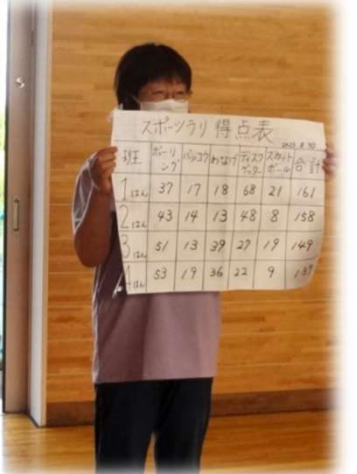 スポーツラリ 得点表
ボーリング わっなげ ディスクゲッター スカットボール 合計
1はん 37 17 18 68 21 161
2はん 43 14 13 48 8 158
3はん 51 13 39 27 19 149
4はん 53 19 36 22 9 139